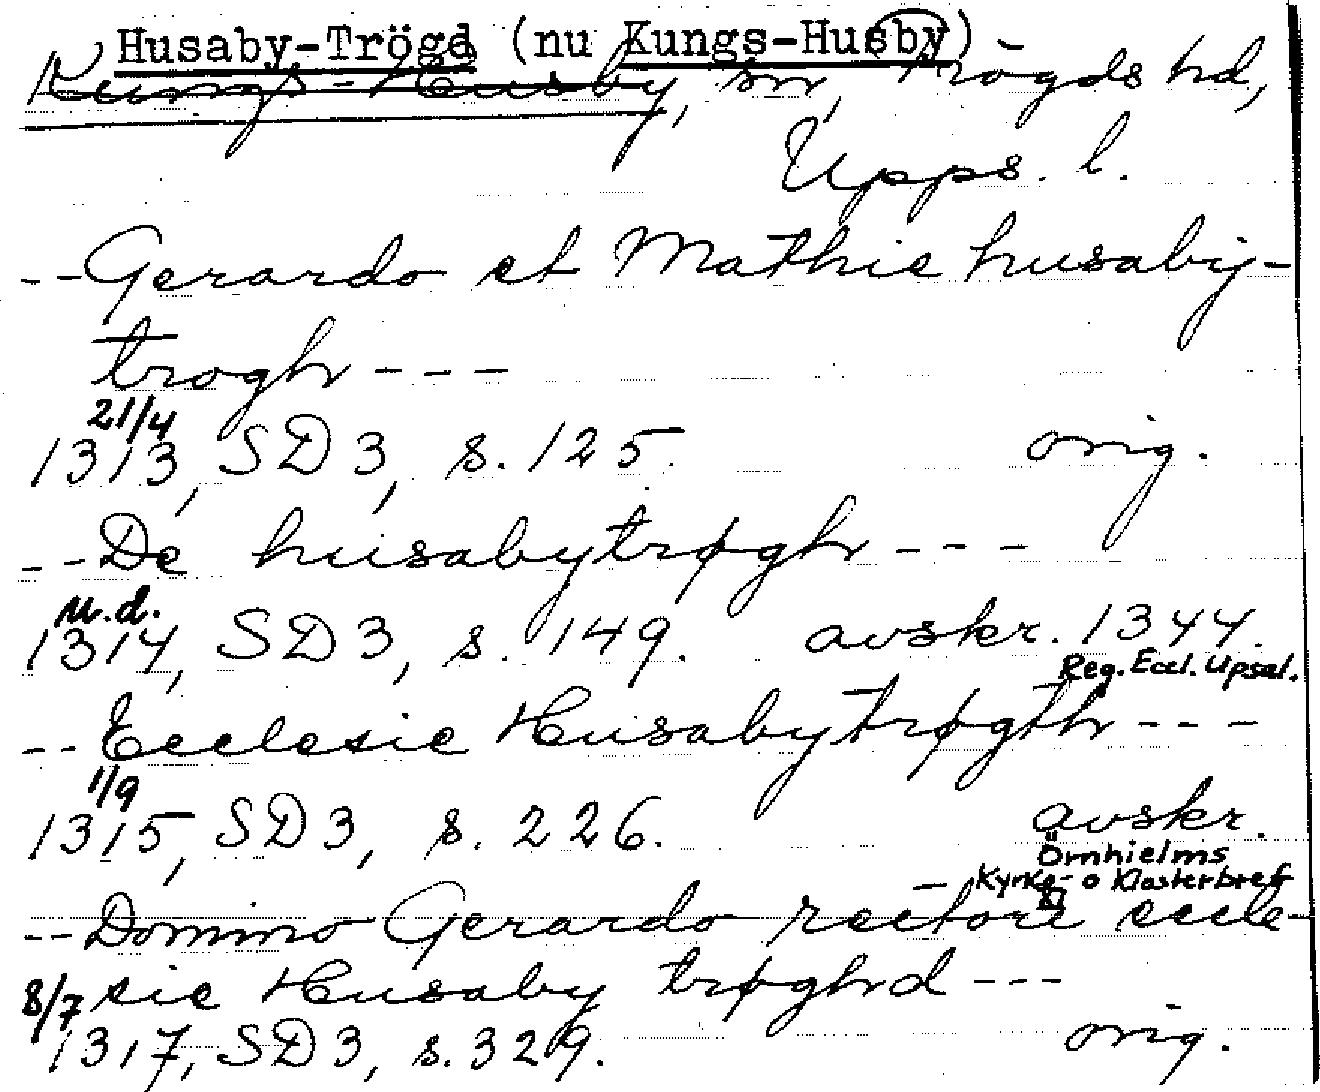 Husaby-Trögd (nu Kungs-Husby)
Kungs-Husby, sn, Trögds hd,
Upps. l.
--Gerardo et Mathie husaby-
troghr ---
21/4
1313, SD3, s. 125. orig.
--De husabytrøghr ---
u.d.
1314, SD3, s. 149. avskr. 1344.
Reg. Eccl. Upsal.
--Ecclesie Husabytrøgthr ---
1/9
1315, SD3, s. 226. avskr.
Örnhielms
Kyrko- o Klosterbref
--Domino Gerardo rectori eccle-
sie Husaby trøghrd ---
8/7
1317, SD3, s. 329. orig.